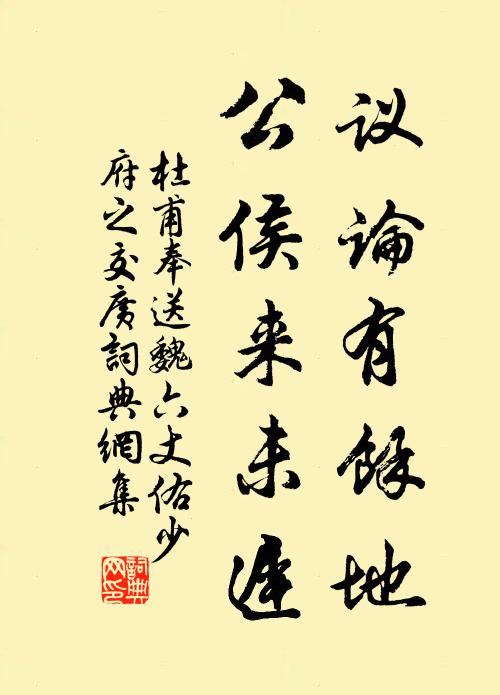 议论有馀地
公侯来未遲
杜甫奉送魏六丈佑少
府之交廣詞典網集
詞典
网印